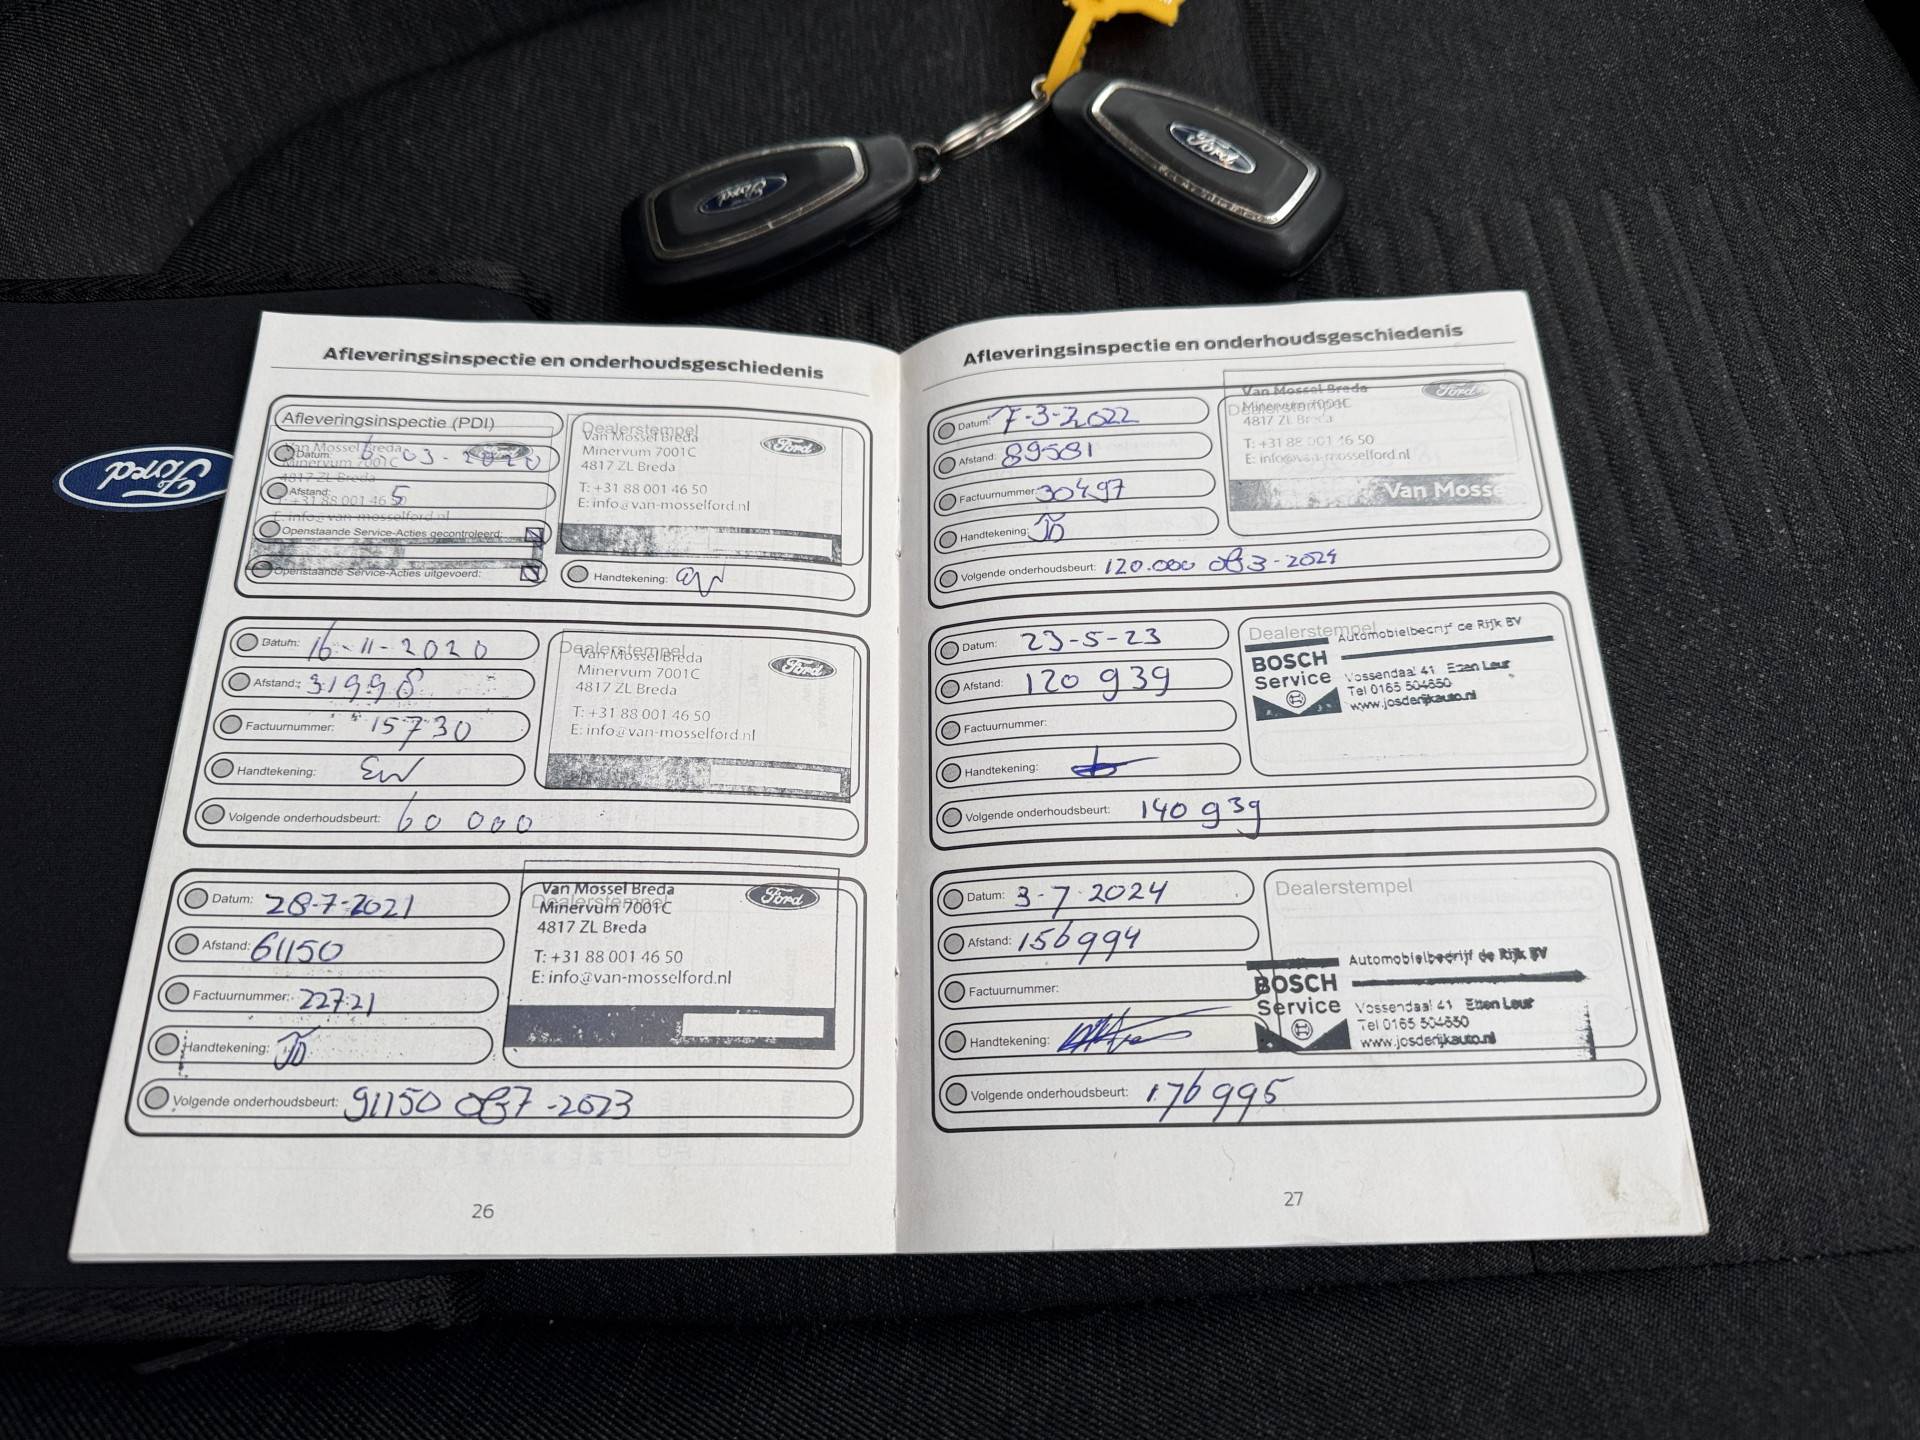 Ford
Ford
Ford
Afleveringsinspectie en onderhoudsgeschiedenis
Afleveringsinspectie (PDI)
Van Mossel Breda
Minervum 7001C
4817 ZL Breda
T: +31 88 001 46 50
E: info@van-mosselford.nl
Datum: 6 03-2020
Afstand: 5
Openstaande Service-Acties gecontroleerd:
Openstaande Service-Acties uitgevoerd:
Dealerstempel
Van Mossel Breda
Minervum 7001C
4817 ZL Breda
T: +31 88 001 46 50
E: info@van-mosselford.nl
Ford
Handtekening:
Datum: 16-11-2020
Afstand: 31998
Factuurnummer: 15730
Handtekening:
Volgende onderhoudsbeurt: 60 000
Dealerstempel
Van Mossel Breda
Minervum 7001C
4817 ZL Breda
T: +31 88 001 46 50
E: info@van-mosselford.nl
Ford
Datum: 28-7-2021
Afstand: 61150
Factuurnummer: 22721
Handtekening:
Volgende onderhoudsbeurt: 91150 of 7-2023
Dealerstempel
Van Mossel Breda
Minervum 7001C
4817 ZL Breda
T: +31 88 001 46 50
E: info@van-mosselford.nl
Ford
26
Afleveringsinspectie en onderhoudsgeschiedenis
Datum: 7-3-2022
Afstand: 89581
Factuurnummer: 30497
Handtekening:
Volgende onderhoudsbeurt: 120.000 of 3-2024
Dealerstempel
Van Mossel Breda
Minervum 7001C
4817 ZL Breda
T: +31 88 001 46 50
E: info@van-mosselford.nl
Ford
Van Mosse
Datum: 23-5-23
Afstand: 120 939
Factuurnummer:
Handtekening:
Volgende onderhoudsbeurt: 140 939
Dealerstempel
Automobielbedrijf de Rijk BV
BOSCH
Service
Vossendaal 41 Etten Leur
Tel 0165 504650
www.josderijkauto.nl
Datum: 3-7-2024
Afstand: 156994
Factuurnummer:
Handtekening:
Volgende onderhoudsbeurt: 176995
Dealerstempel
Automobielbedrijf de Rijk BV
BOSCH
Service
Vossendaal 41 Etten Leur
Tel 0165 504650
www.josderijkauto.nl
27